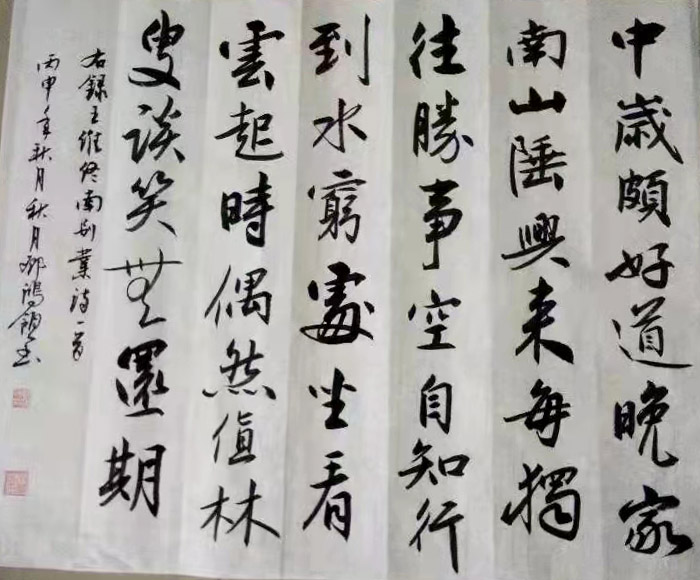 中歲頗好道晚家
南山陲興來每獨
往勝事空自知行
到水窮處坐看
雲起時偶然值林
叟談笑無還期
右錄王維終南別業詩一首
丙申年秋月秋月鴻書